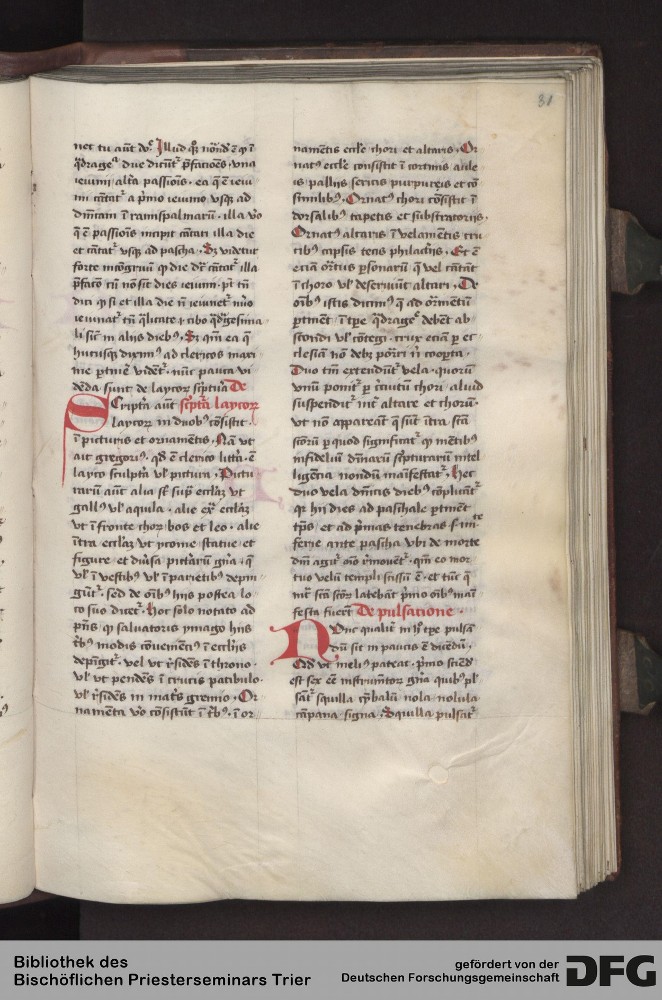 31
net tu aut dō. Illud q̄ʒ nōnd ē q i
q̄drageᵃ due dicūtʳ p̄facōes · una
ieiunii alt̄a passiōis · ea q̄ ē ieiu
nii cātatʳ a p̄mo ieiunio usqʒ ad
dn̄icam ī ramispalmarū · illa v̊o
q̄ ē passiōis incipit cātari illa die
et cātatʳ usqʒ ad pascha · Sʒ videtur
forte incōgruū q die dr̄ cātatʳ illa
p̄faco cū nō sit dies ieiunii · pt tn̄
dici q si et illa die n̄ ieiunetʳ
ieiunatʳ tn̄ q̄litate 7 cibo q̄dragesima
li sicut in aliis diebꝰ · Sʒ qm̄ ea q̄
hucusqʒ diximꝰ ad clericos maxi
me ptinē vidētʳ · nūc pauca vi
dēda sunt de laycoꝝ sc̄ptura De
Scripta aut sc̄pta laycoꝝ
laycoꝝ in duobꝰ cōsistit ·
ī picturis et ornamentis · Nā ut
ait gregoriꝰ · qd ē clerico litt̄a · ē
layco sculpta vl' pictura · Pictu
rarū aut alia sē sup̄ eccl'iaʒ ut
gallꝰ vl' aquila · alie ex̄ eccl'iaʒ
ut ī fronte chori bos et leo · alie
ītra eccl'iaʒ ut ycone statue et
figure et diu̅sa pictarū gn̄a · q̄
vl' ī vestibꝰ vl' ī parietibꝰ depin
gūtʳ · sed de oībꝰ hiis postea lo
co suo dicetʳ · hoc solo notato ad
pn̄s q salvatoris ymago hiis
tbꝰ modis cōvenientiꝰ ī eccl'iis
depīgitʳ · vel ut r̄sidēs ī throno ·
vl' ut pendēs ī crucis patibulo ·
vl' r̄sidēs in mat̄s gremio · Or
namēta v̊o cōsistūt ī tbꝰ · ī or
namētis eccl'ie chori et altaris · Or
natꝰ eccl'ie consistit ī cortinis aule
is palliis sericis purpureis et cō
similibꝰ · Ornatꝰ chori cōsistit ī
dorsalibꝰ tapetis et substratoriis ·
Ornatꝰ altaris ī velamētis cru
cibꝰ capsis tecis philactiis · Et ē
eciā ornatus p̱sonarū q̄ vel cātāt
ī choro vl' deseruiūt altari · De
oībꝰ istis dicimꝰ q̄ ad ornm̄tum
p̱tinent ī tp̄e q̄drageᵉ debent ab
scondi vl' cōtegi · crux eciam p̱ ec
clesiā nō debʒ portari n̄ coop̱ta ·
Duo tm̄ extendūtʳ vela · quorū
unū ponitʳ p̱ circuitū chori · aliud
suspenditʳ int̄ altare et chorū ·
ut nō appareāt q̄ sūt ītra sctā
sctorū p̱ quod significatʳ q mētibꝰ
infideliū divinarū scripturarū intel
ligēcia nondū māifestatʳ · Hec
duo vela dn̄icis diebꝰ cōplicātʳ
qr hii dies ad paschale p̱tinēt
tp̄s · et ad p̄mas tenebras s · iiii te
ferie ante pascha ubi de morte
dn̄i agitʳ oīo r̄movētʳ · qm̄ eo mor
tuo velū templi scissū ē · et tūc q̄
int̄ sctā sctoꝝ latebāt p̄mo oībꝰ māi
festa fuerūt De pulsacione ·
Nunc qualit̄ in h̊ tp̄e pulsā
dū sit in paucis ē dicēdū ·
Qd ut meliꝰ pateat · p̄mo sciēd
est sex eē instrum̄tor gn̄a quibꝰ pl'
satʳ squilla cȳbalū nola nolula
cāpana signa · Squilla pulsatʳ
Bibliothek des
Bischöflichen Priesterseminars Trier
gefördert von der
Deutschen Forschungsgemeinschaft
DFG